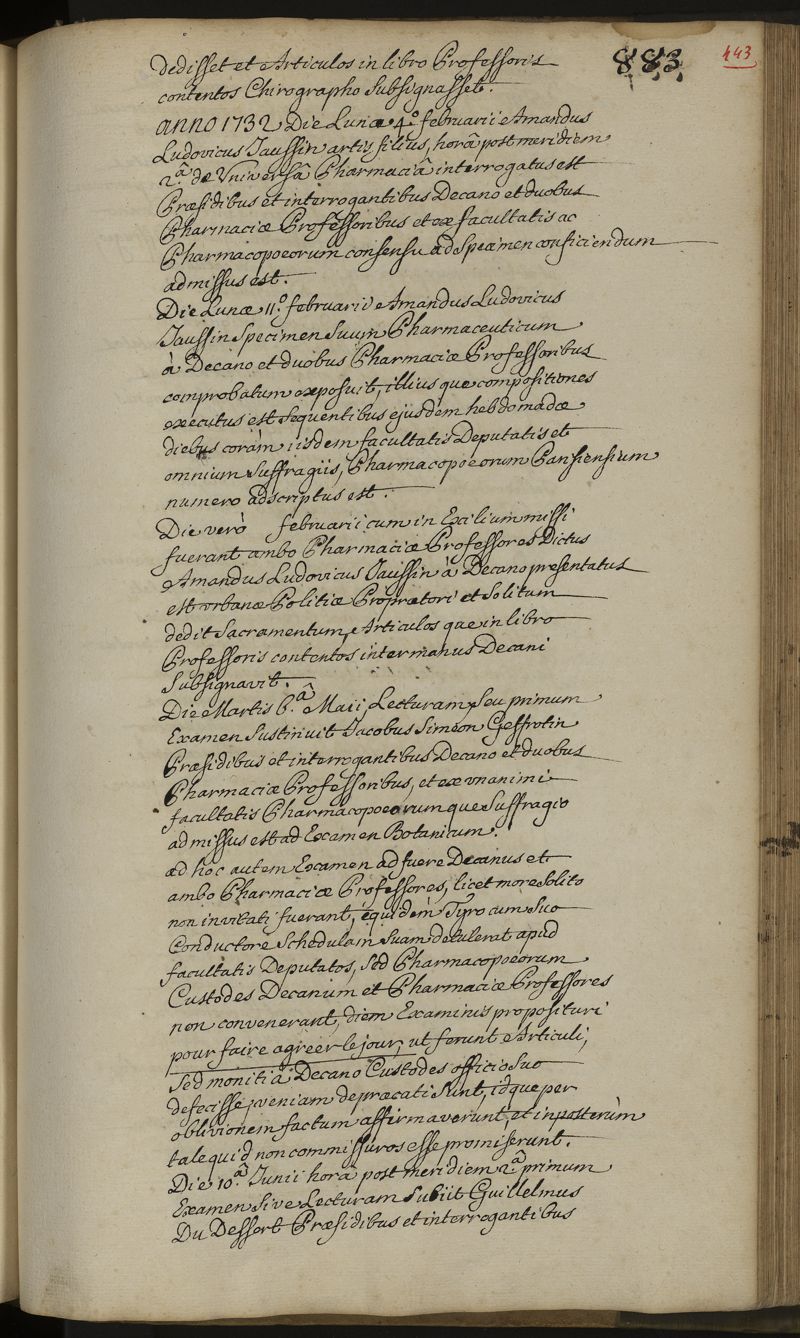 883
443
dedisset et Articulos in libro Professoris
contentos Chirographo Subsignasset.
anno 1732 Die Lunæ 4.º februarii Amandus
Ludovicus Jaussin artis filius, horâ post meridiem
2.â de Universâ Pharmaciâ interrogatus est
Præsidibus et interrogantibus Decano et duobus
Pharmaciæ Professoribus et ex facultatis ac
Pharmacopoeorum consensu ad Specimen conficiendum
admissus est.
Die Lunæ 11.º februarii Amandus Ludovicus
Jaussin Specimen Suum Pharmaceuticum
à Decano et duobus Pharmaciæ Professoribus
comprobatum exposuit, illius que compositiones
executus est Sequentibus ejusdem hebdomadæ
diebus coràm iisdem facultatis Deputatis et
omnium Suffragiis, Pharmacopoeorum Parisiensium
numero adscriptus est.
Die verò februarii cum in Exilium missi
fuerant ambo Pharmaciæ Professores Dictus
Amandus Ludovicus Jaussin à Decano presentatus
est urbanæ Politiæ Proprætori et Solitum
dedit Sacramentum, Articulos que in libro
Professoris contentos inter manus Decani
Subsignavit.
Die Martis 6.â Maii Lecturam Seu primum
Examen Sustinuit Jacobus Simeon Geffrotin
Præsidibus et interrogantibus Decano et duobus
Pharmaciæ Professoribus, et ex unanimi
facultatis Pharmacopoeorum que Suffragio
admissus est ad Examen Botanicum.
ad hoc autem Examen adfuere Decanus et
ambo Pharmaciæ Professores, licet more Solito
non invitati fuerant, equidem Tyro cum Suo
Conductore Schedulam Suam detulerat apud
facultatis Deputatos, Sed Pharmacopoeorum
Custodes Decanum et Pharmaciæ Professores
non convenerant, diem Examinis proposituri
pour faire agréer le jour, ut ferunt Articuli,
Sed moniti à Decano Custodes officio Suo
defecisse, veniam depræcati Sunt, idque per
oblivionem factum affirmaverunt, et in posterùm
tale quid non commissuros esse promiserunt.
Die 10.â Junii horâ post meridiem 2.â primum
Examen Sive Lecturam Subiit Guillelmus
Du Dessert Præsidibus et interrogantibus